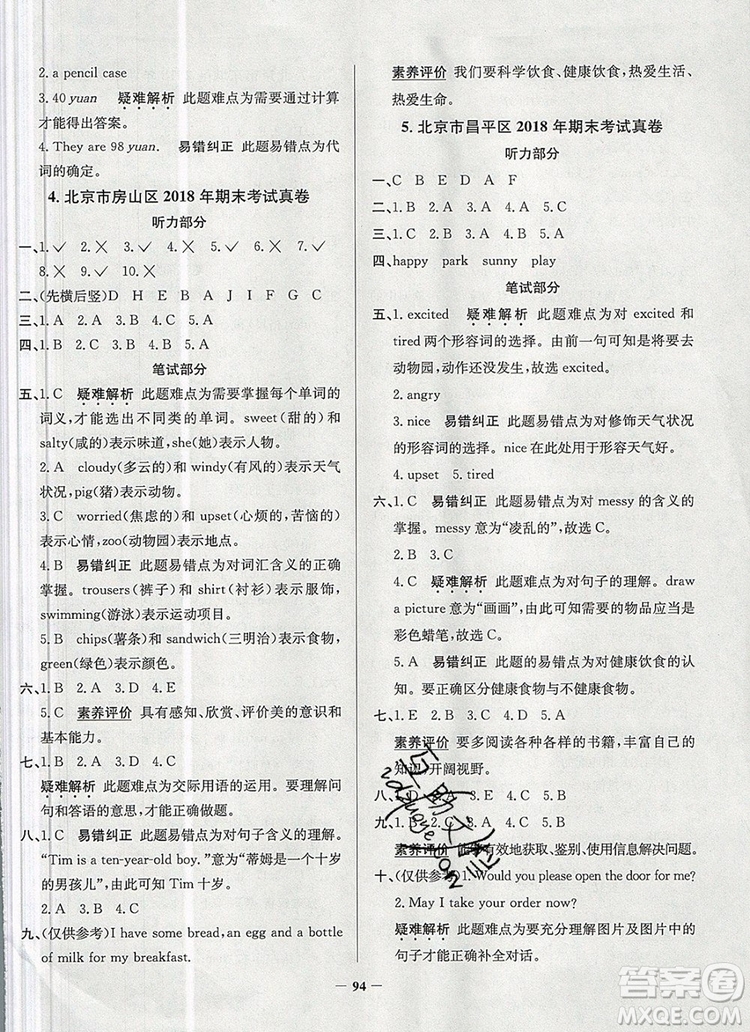 2. a pencil case
3. 40 yuan 疑难解析 此题难点为需要通过计算
才能得出答案。
4. They are 98 yuan. 易错纠正 此题易错点为代
词的确定。
4. 北京市房山区 2018 年期末考试真卷
听力部分
一、1.✓ 2.✕ 3.✓ 4.✕ 5.✕ 6.✓ 7.✓
8.✕ 9.✓ 10.✕
二、(先横后竖)D H E B A J I F G C
三、1. A 2. A 3. B 4. A 5. B
四、1. B 2. C 3. C 4. A 5. B
笔试部分
五、1. C 疑难解析 此题难点为需要掌握每个单词的
词义,才能选出不同类的单词。sweet(甜的)和
salty(咸的)表示味道,she(她)表示人物。
2. A cloudy(多云的)和 windy(有风的)表示天气
状况,pig(猪)表示动物。
3. C worried(焦虑的)和 upset(心烦的,苦恼的)
表示心情,zoo(动物园)表示地点。
4. C 易错纠正 此题易错点为对词汇含义的正确
掌握。trousers(裤子)和 shirt(衬衫)表示服饰,
swimming(游泳)表示运动项目。
5. B chips(薯条)和 sandwich(三明治)表示食物,
green(绿色)表示颜色。
六、1. B 2. A 3. D 4. E
5. C 素养评价 具有感知、欣赏、评价美的意识和
基本能力。
七、1. C 2. D 3. A 4. B
疑难解析 此题难点为交际用语的运用。要理解问
句和答语的意思,才能正确作答。
八、1. C 易错纠正 此题易错点为对句子含义的理解。
"Tim is a ten-year-old boy."意为"蒂姆是一个十岁
的男孩儿",由此可知 Tim 十岁。
2. A 3. B 4. C 5. A
九、(仅供参考)I have some bread, an egg and a bottle
of milk for my breakfast.
素养评价 我们要科学饮食、健康饮食,热爱生活、
热爱生命。
5. 北京市昌平区 2018 年期末考试真卷
听力部分
一、C B E D A F
二、1. B 2. A 3. A 4. C 5. A
三、1. B 2. A 3. B 4. C
四、happy park sunny play
笔试部分
五、1. excited 疑难解析 此题难点为对 excited 和
tired 两个形容词的选择。由前一句可知要去
动物园,动作还没发生,故选 excited。
2. angry
3. nice 易错纠正 此题易错点为对修饰天气状况
的形容词的选择。nice 在此处用于形容天气好。
4. upset 5. tired
六、1. C 易错纠正 此题易错点为对 messy 的含义的
掌握。messy 意为"凌乱的",故选 C。
2. B 3. B
4. C 疑难解析 此题难点为对句子的理解。draw
a picture 意为"画画",由此可知需要的物品应当是
彩色蜡笔,故选 C。
5. A 易错纠正 此题的易错点为对健康饮食的认
知。要正确区分健康食物与不健康食物。
七、1. B 2. D 3. E 4. C 5. A
素养评价 要多阅读各种各样的书籍,丰富自己的
知识,开阔视野。
八、D
九、1. C
素养评价 能够有效地获取、鉴别、使用信息解决问题。
十、(仅供参考)1. Would you please open the door for me?
2. May I take your order now?
疑难解析 此题难点为要充分理解图片及图片中的
句子才能正确补全对话。
94
答案圈
MXQE.COM